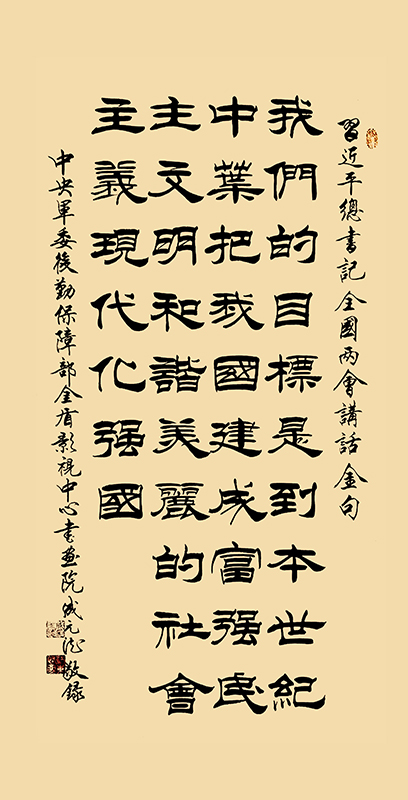 習近平總書記全國两會講話金句
我們的目標是到本世紀
中葉把我國建成富强民
主文明和諧美麗的社會
主義現代化强國
中央軍委後勤保障部金盾影視中心書畫院成元敬録